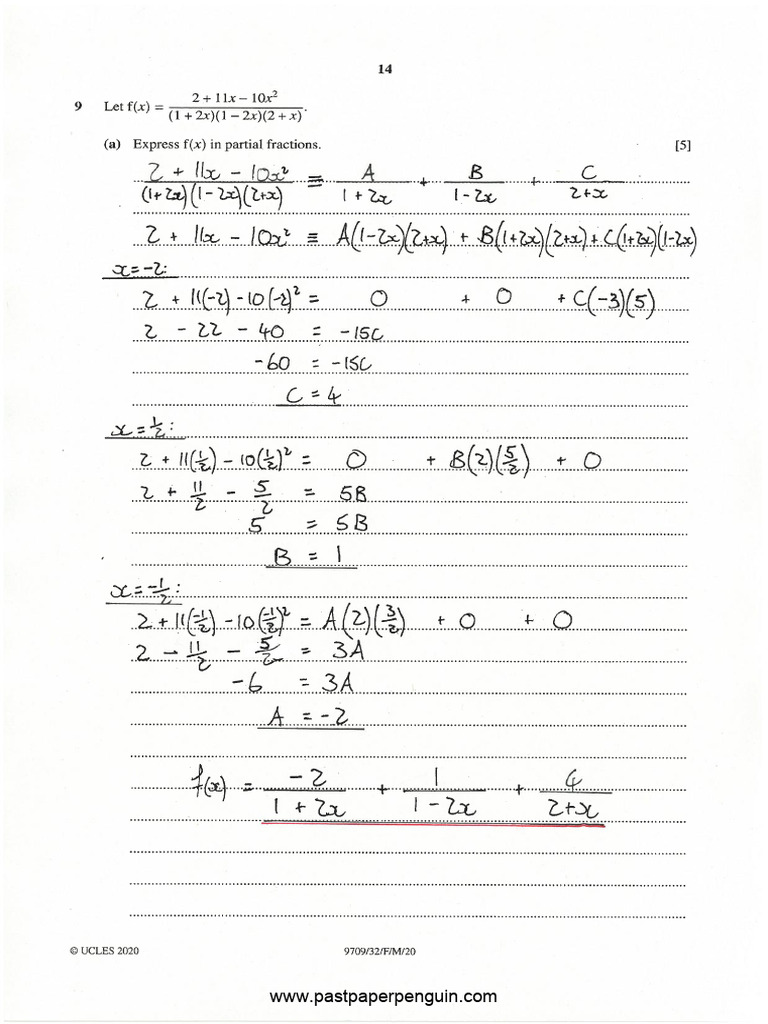 14
9 Let f(x) = (2 + 11x − 10x²)/((1 + 2x)(1 − 2x)(2 + x)).
(a) Express f(x) in partial fractions. [5]
(2 + 11x − 10x²)/((1+2x)(1−2x)(2+x)) ≡ A/(1+2x) + B/(1−2x) + C/(2+x)
2 + 11x − 10x² ≡ A(1−2x)(2+x) + B(1+2x)(2+x) + C(1+2x)(1−2x)
x = −2:
2 + 11(−2) − 10(−2)² = 0 + 0 + C(−3)(5)
2 − 22 − 40 = −15C
−60 = −15C
C = 4
x = ½:
2 + 11(½) − 10(½)² = 0 + B(2)(5/2) + 0
2 + 11/2 − 5/2 = 5B
5 = 5B
B = 1
x = −½:
2 + 11(−1/2) − 10(−1/2)² = A(2)(3/2) + 0 + 0
2 − 11/2 − 5/2 = 3A
−6 = 3A
A = −2
f(x) = −2/(1 + 2x) + 1/(1 − 2x) + 4/(2+x)
© UCLES 2020 9709/32/F/M/20
www.pastpaperpenguin.com